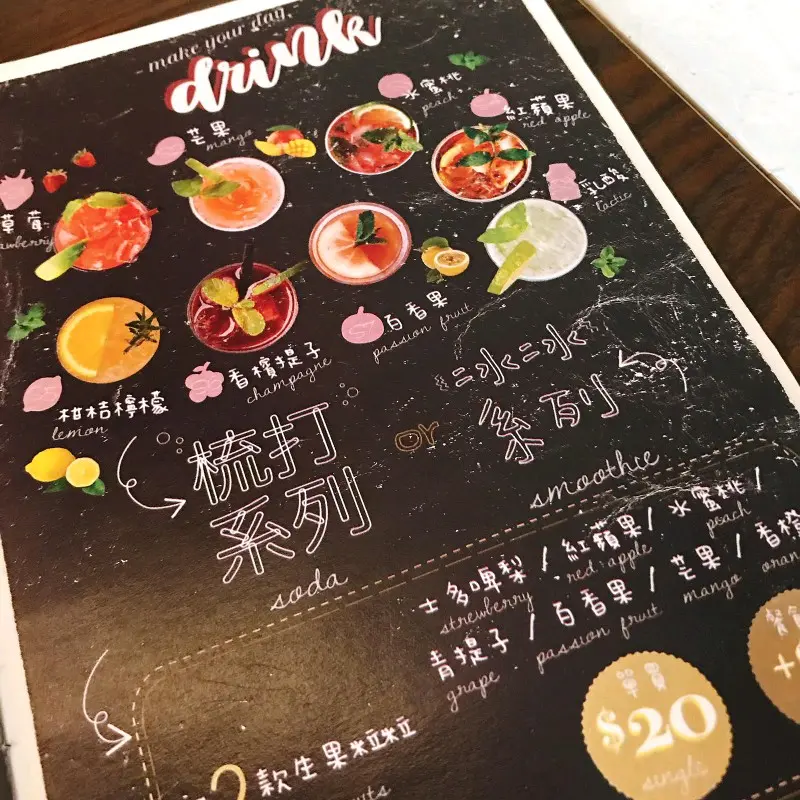 make your day,
drink
水蜜桃
peach
紅蘋果
red apple
芒果
mango
乳酸
lactic
草莓
百香果
passion fruit
香檳提子
champagne
柑桔檸檬
lemon
梳打
系列
soda
or
冰冰
系列
smoothie
士多啤梨 / 紅蘋果 / 水蜜桃 /
strewberry red apple peach
青提子 / 百香果 / 芒果 / 香橙
grape passion fruit mango
單買
$20
single
2款生果粒粒